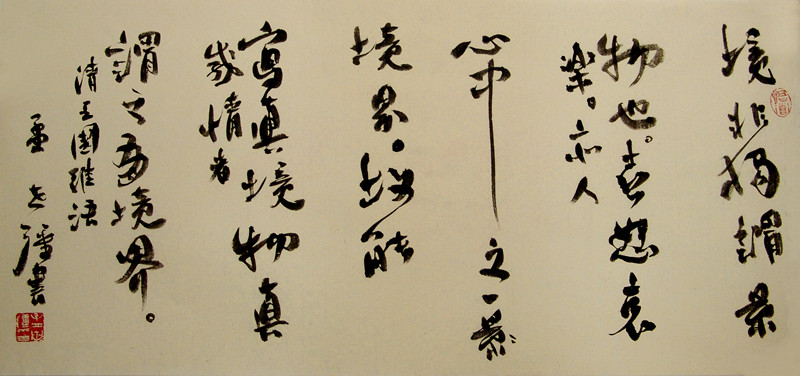 境非獨謂景
物也。喜怒哀
樂。亦人
心中之一景
境界。故能
寫真境物真
感情者
謂之有境界。
清王國維語
孟世書